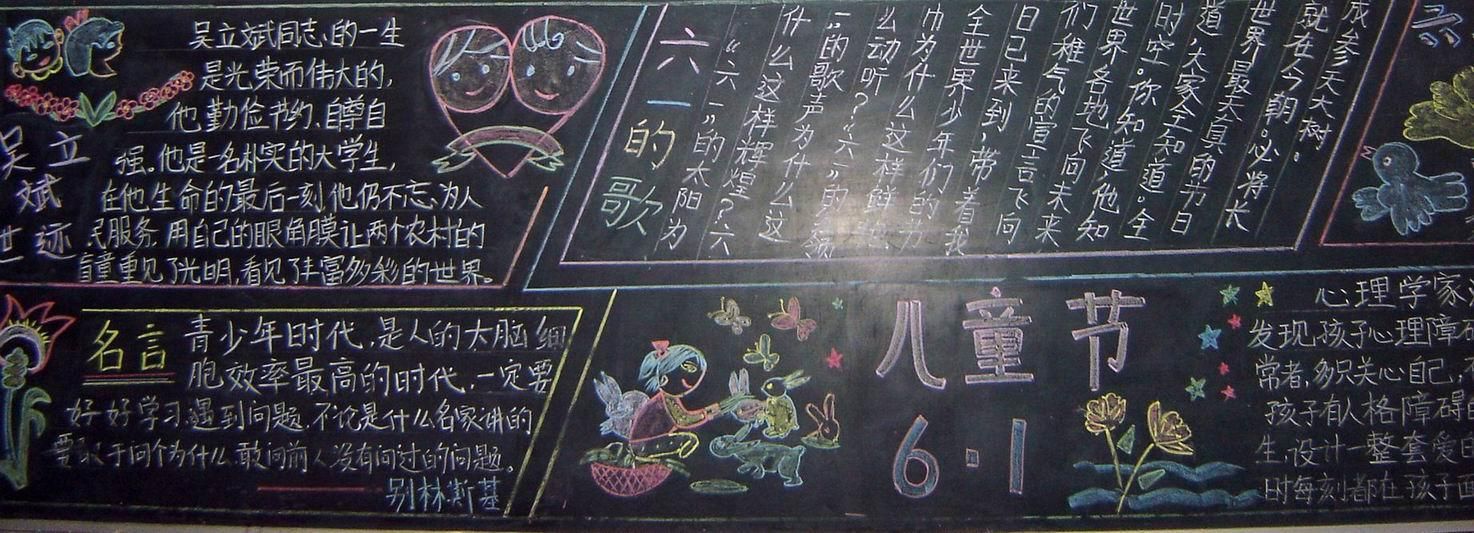 吴立斌同志的一生
是光荣而伟大的,
他勤俭节约、自尊自
强。他是一名朴实的大学生,
在他生命的最后一刻他仍不忘为人
民服务,用自己的眼角膜让两个农村的
盲童重见了光明,看见了丰富多彩的世界。
吴立
斌
世迹
六一的歌
“六一”的太阳为
什么这样辉煌?六
一”的歌声为什么这
么动听?“六一”的领
巾为什么这样鲜艳
全世界少年们的节
日已来到,带着我
们稚气的宣言飞向
世界各地飞向未来
时空。你知道,他知
道,大家全知道。全
世界最天真的节日
就在今朝。必将长
成参天大树。
名言
青少年时代,是人的大脑细
胞效率最高的时代,一定要
好好学习遇到问题,不论是什么名家讲的
要敢于问个为什么敢问前人没有问过的问题。
别林斯基
儿童节
6·1
心理学家
发现,孩子心理障碍
常者,多只关心自己,
孩子有人格障碍的
生,设计一整套爱的
时每刻都在孩子面